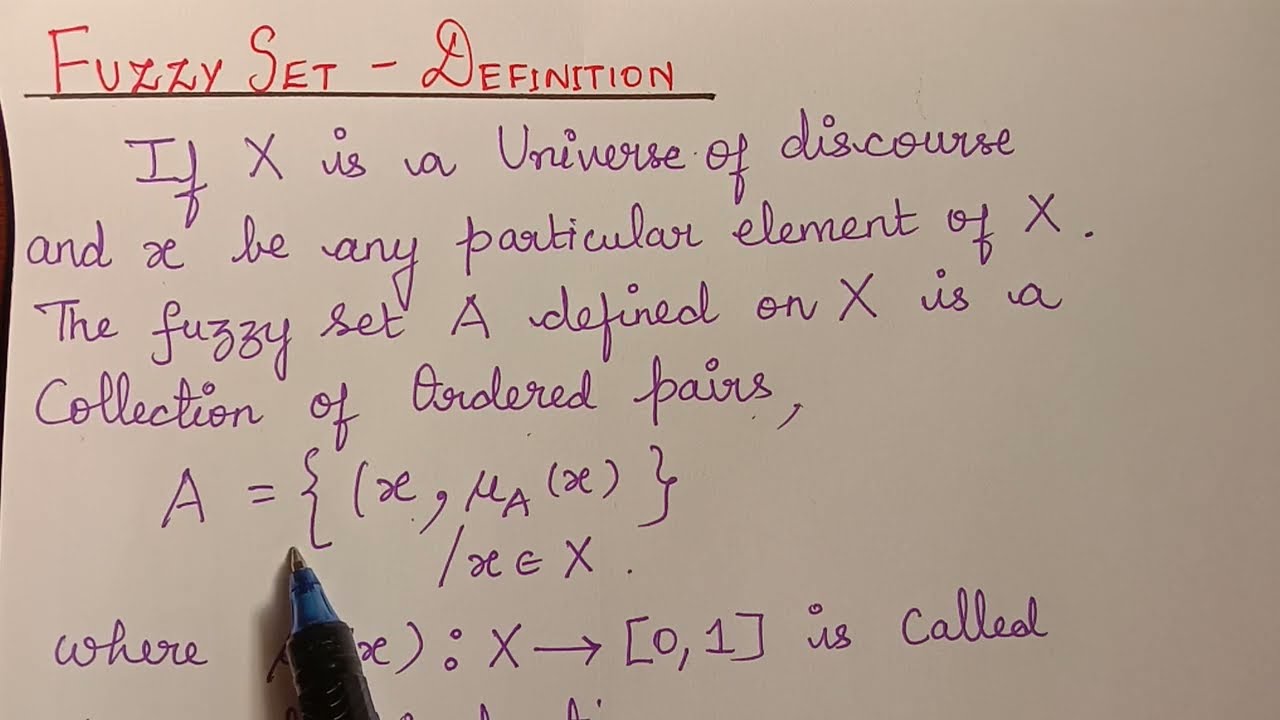 FUZZY SET - DEFINITION
If X is a Universe of discourse
and x be any particular element of X.
The fuzzy set A defined on X is a
Collection of Ordered pairs,
A = { (x, μA(x) }
/x ∈ X .
where (x) : X → [0,1] is called